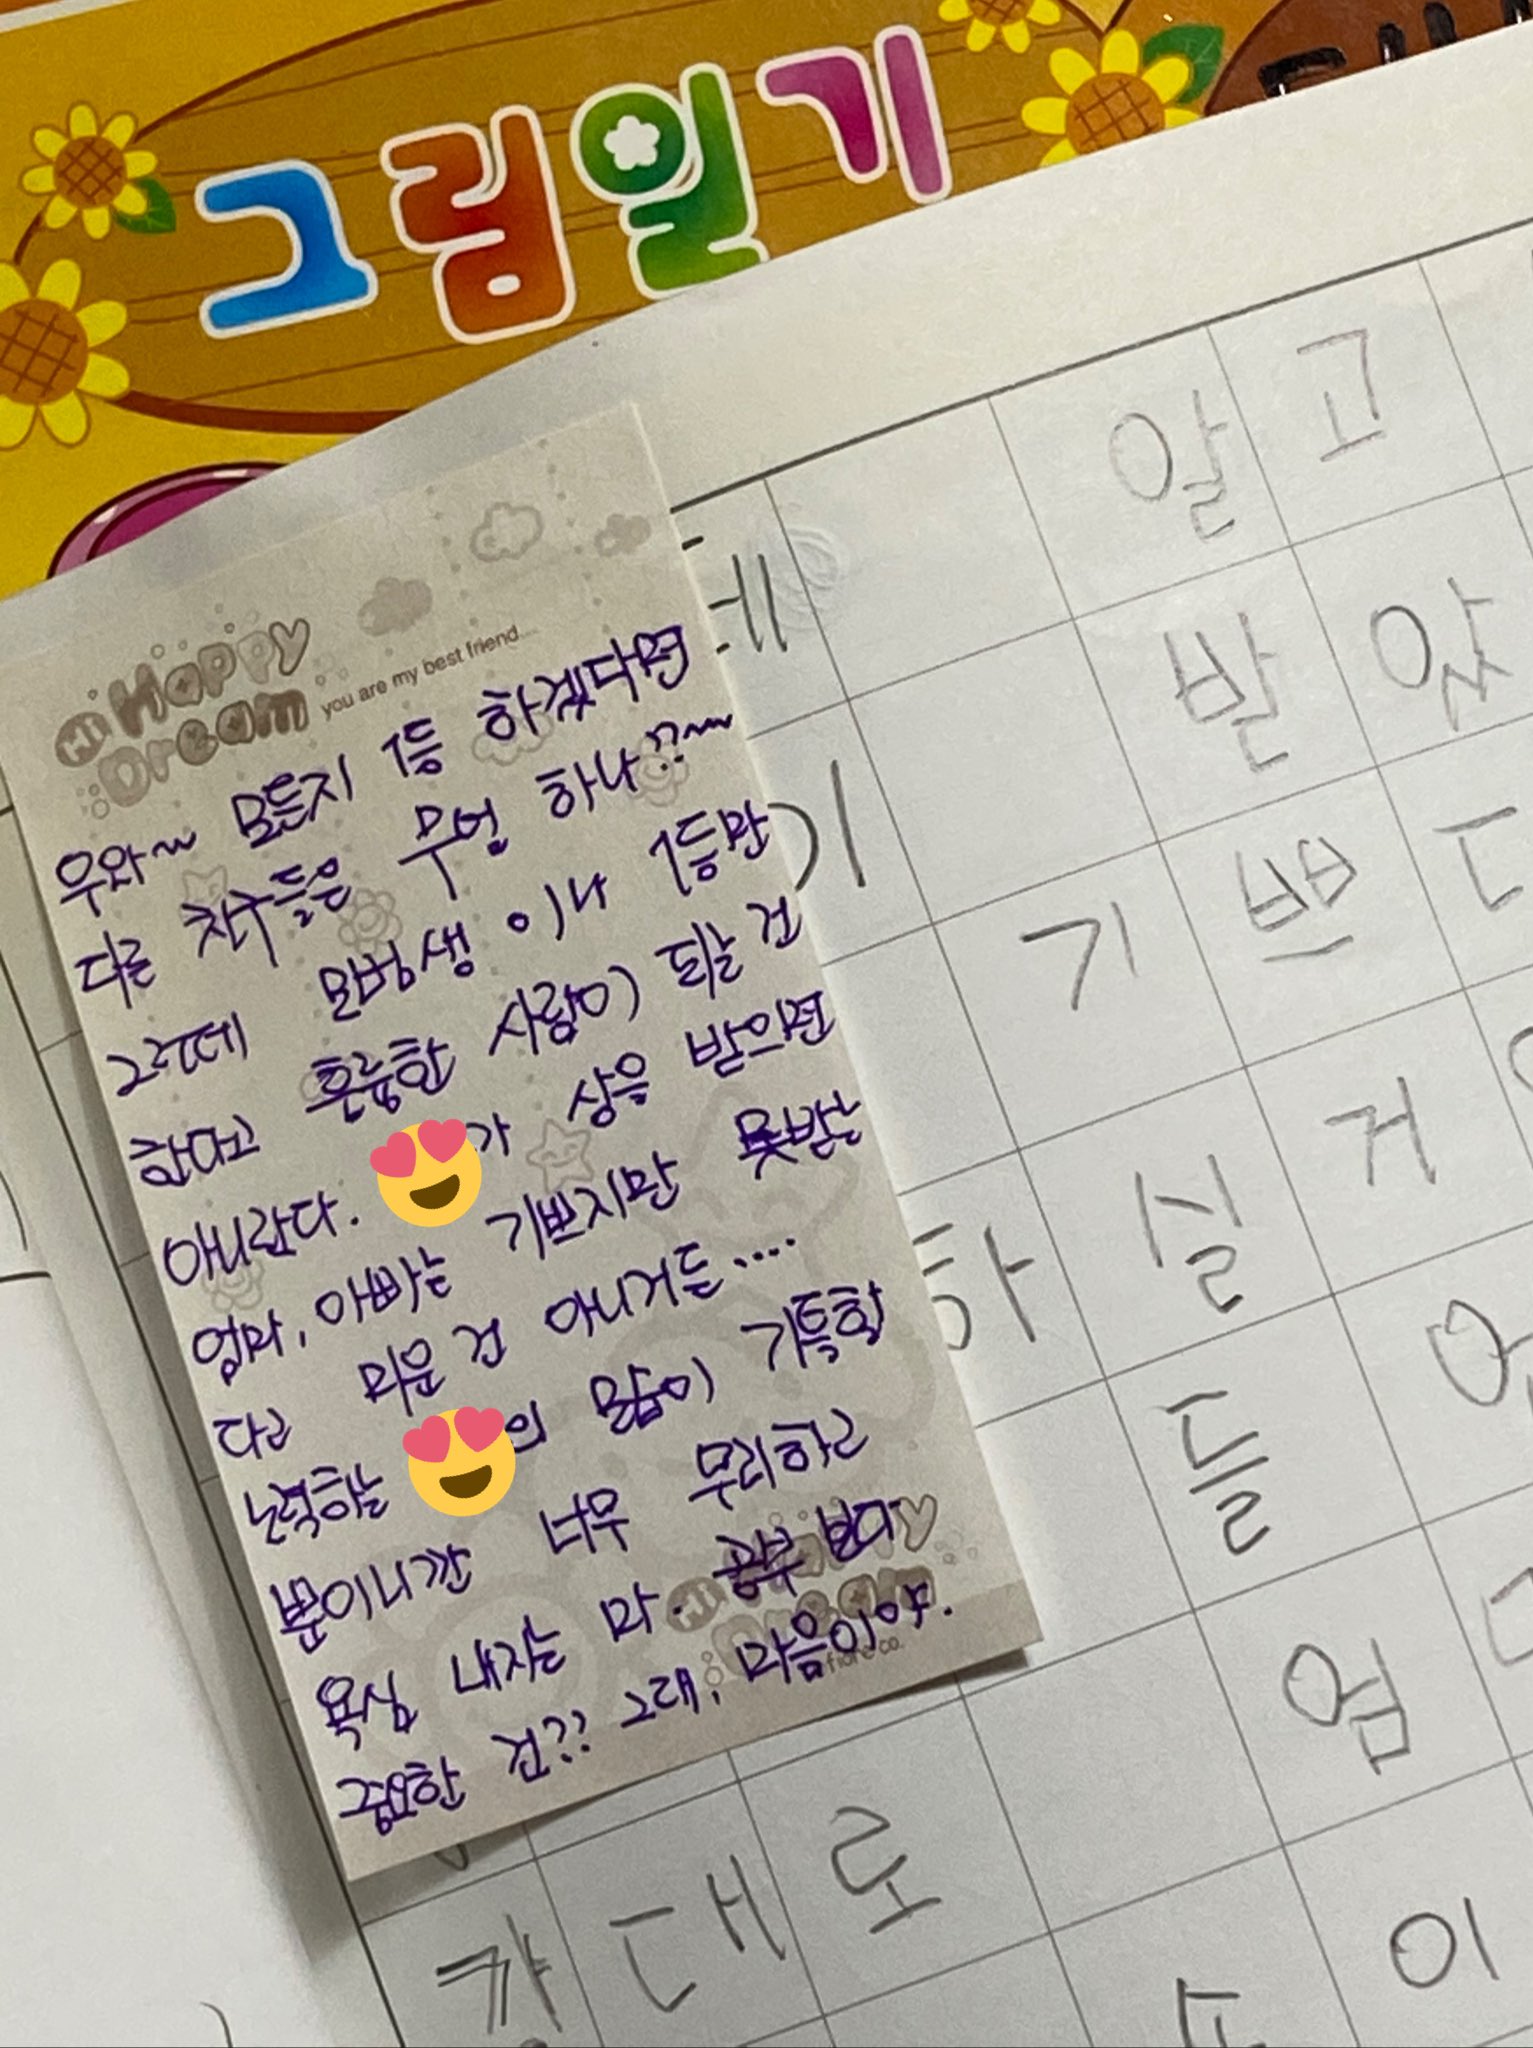 그림일기
Hi Happy
Dream you are my best friend....
우와~ 모든지 1등 하겠다면
다른 친구들은 무얼 하나??~
그런데 모범생이나 1등만
한다고 훌륭한 사람이 되는 건
아니란다. 가 상을 받으면
엄마, 아빠는 기쁘지만 못받는
다고 미운 건 아니거든....
노력하는 의 모습이 기특할
뿐이니깐 너무 무리하고
욕심 내지는 마. 공부 보다
중요한 건?? 그래, 마음이야.
알 고
데 받 았
기 쁘 다
하 실 거
들 엄
대 로
이